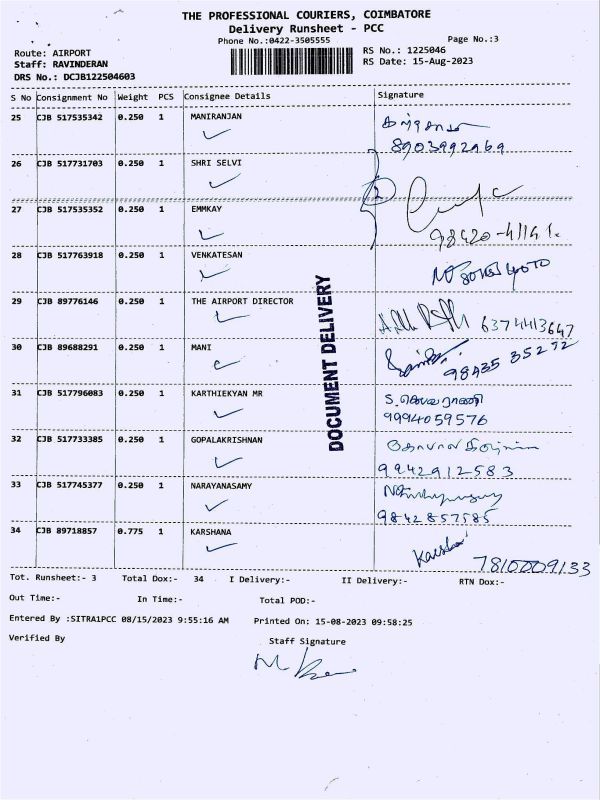 THE PROFESSIONAL COURIERS, COIMBATORE
Delivery Runsheet - PCC
Phone No.:0422-3505555
Page No.:3
Route: AIRPORT
RS No.: 1225046
Staff: RAVINDERAN
RS Date: 15-Aug-2023
DRS No.: DCJB122504603
S No Consignment No Weight PCS Consignee Details Signature
25 CJB 517535342 0.250 1 MANIRANJAN
8903992969
26 CJB 517731703 0.250 1 SHRI SELVI
2
27 CJB 517535352 0.250 1 EMMKAY
98420-41141.
28 CJB 517763918 0.250 1 VENKATESAN
29 CJB 89776146 0.250 1 THE AIRPORT DIRECTOR
6374413647
30 CJB 89688291 0.250 1 MANI
98435 35272
31 CJB 517796083 0.250 1 KARTHIEKYAN MR
9994059576
32 CJB 517733385 0.250 1 GOPALAKRISHNAN
9942912583
33 CJB 517745377 0.250 1 NARAYANASAMY
9842857585
34 CJB 89718857 0.775 1 KARSHANA
7810009133
DOCUMENT DELIVERY
Tot. Runsheet:- 3 Total Dox:- 34 I Delivery:- II Delivery:- RTN Dox:-
Out Time:- In Time:- Total POD:-
Entered By :SITRA1PCC 08/15/2023 9:55:16 AM Printed On: 15-08-2023 09:58:25
Verified By Staff Signature